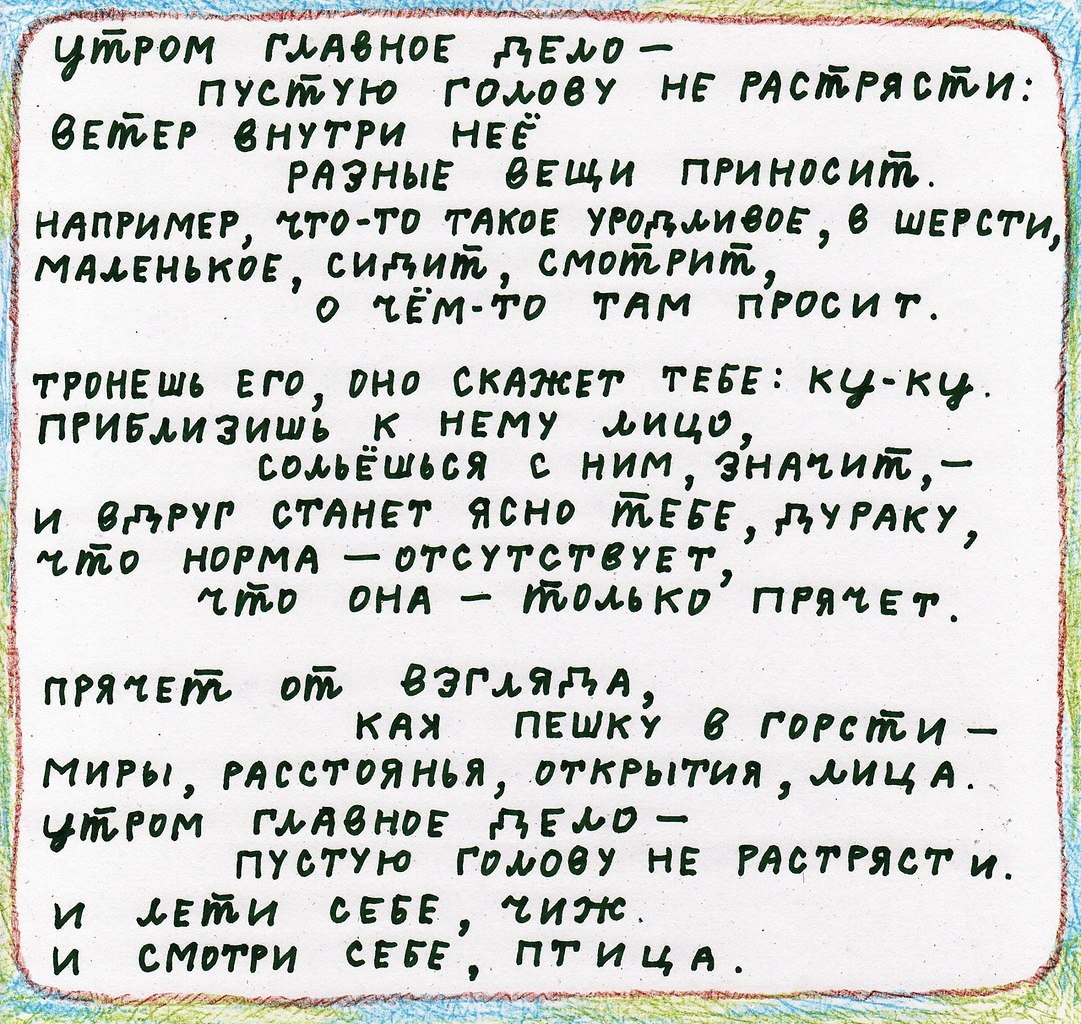 УТРОМ ГЛАВНОЕ ДЕЛО —
ПУСТУЮ ГОЛОВУ НЕ РАСТРЯСТИ:
ВЕТЕР ВНУТРИ НЕЁ
РАЗНЫЕ ВЕЩИ ПРИНОСИТ.
НАПРИМЕР, ЧТО-ТО ТАКОЕ УРОДЛИВОЕ, В ШЕРСТИ,
МАЛЕНЬКОЕ, СИДИТ, СМОТРИТ,
О ЧЁМ-ТО ТАМ ПРОСИТ.
ТРОНЕШЬ ЕГО, ОНО СКАЖЕТ ТЕБЕ: КУ-КУ.
ПРИБЛИЗИШЬ К НЕМУ ЛИЦО,
СОЛЬЁШЬСЯ С НИМ, ЗНАЧИТ, —
И ВДРУГ СТАНЕТ ЯСНО ТЕБЕ, ДУРАКУ,
ЧТО НОРМА — ОТСУТСТВУЕТ,
ЧТО ОНА — ТОЛЬКО ПРЯЧЕТ.
ПРЯЧЕТ ОТ ВЗГЛЯДА,
КАК ПЕШКУ В ГОРСТИ —
МИРЫ, РАССТОЯНЬЯ, ОТКРЫТИЯ, ЛИЦА.
УТРОМ ГЛАВНОЕ ДЕЛО —
ПУСТУЮ ГОЛОВУ НЕ РАСТРЯСТИ.
И ЛЕТИ СЕБЕ, ЧИЖ.
И СМОТРИ СЕБЕ, ПТИЦА.